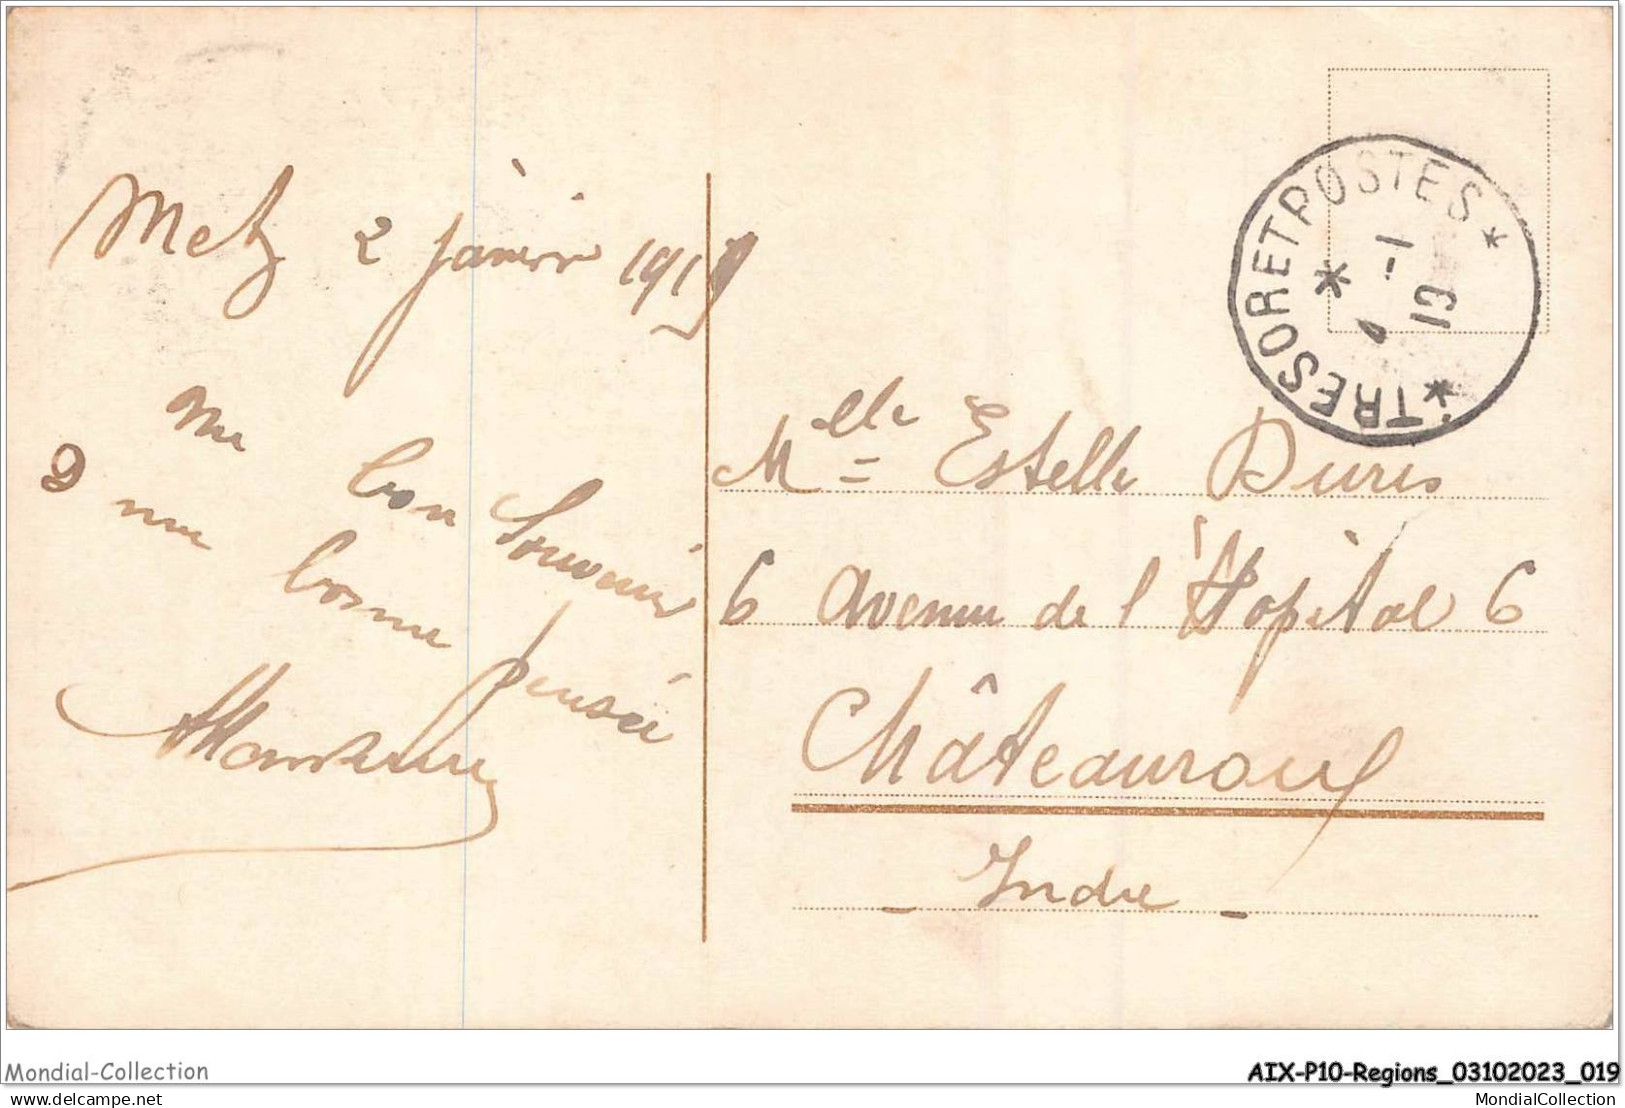 Metz 2 janvier 1919
un bon Souvenir
& une bonne pensée
TRESOR ET POSTES
4 -1
19
Mlle Estelle Duris
6 Avenue de l'Hopital 6
Châteauroux
Indre
Mondial-Collection
AIX-P10-Regions_03102023_019
delcampe.net
MondialCollection